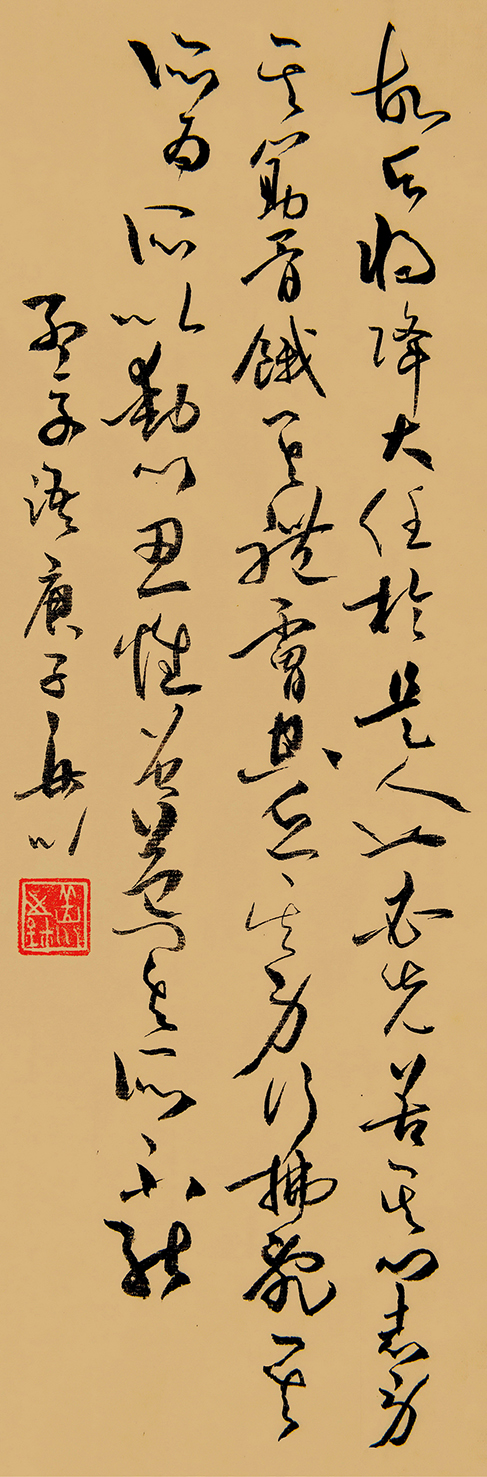 故天将降大任於是人也必先苦其心志劳
其筋骨餓其體膚空乏其身行拂亂其
所为所以動心忍性曾益其所不能
孟子语庚子